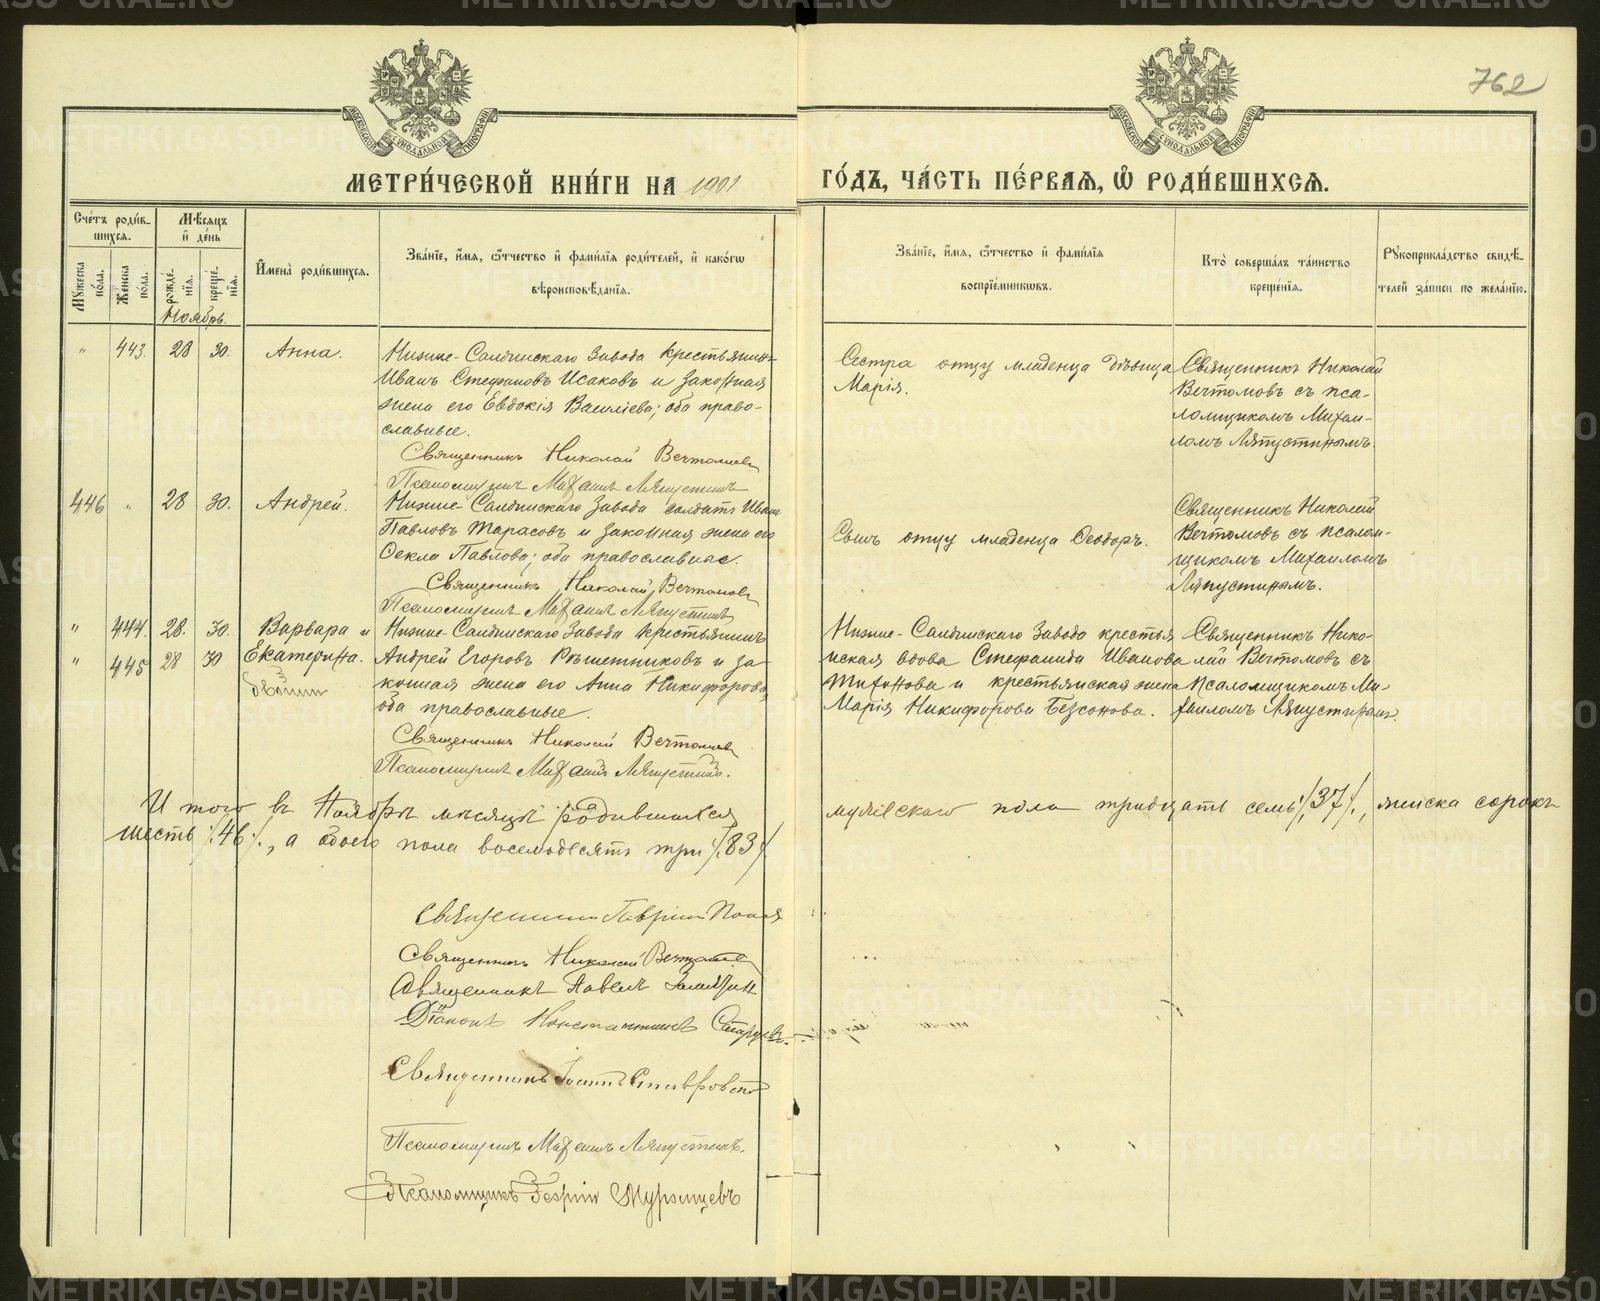 762
МОСКОВСКОЙ СѴНОДАЛЬНОЙ ТИПОГРАФІИ
МОСКОВСКОЙ СѴНОДАЛЬНОЙ ТИПОГРАФІИ
МЕТРИ́ЧЕСКОЙ КНИ́ГИ НА 1901 ГО́ДЪ, ЧА́СТЬ ПЕ́РВАѦ, Ѽ РОДИ́ВШИХСѦ.
Сче́тъ роди́в-
шихсѧ.
Мꙋжеска по́ла.
Же́нска по́ла.
Мѣ́сѧцъ
и҆ де́нь
рожде́нїѧ.
креще́нїѧ.
И҆мена̀ роди́вшихсѧ.
Зва́нїе, и҆́мѧ, ѻ҆́тчество и҆ фами́лїѧ роди́телей, и҆ како́гѡ
вѣроисповѣ́данїѧ.
Зва́нїе, и҆́мѧ, ѻ҆́тчество и҆ фами́лїѧ
воспрїе́мникѡвъ.
Кто̀ соверша́лъ та́инство
креще́нїѧ.
Рꙋкоприкла́дство свидѣ́-
телей за́писи по жела́нїю.
Ноябрь.
" 443. 28 30. Анна.
Нижне-Салдинскаго Завода крестьянинъ
Иванъ Стефановъ Исаковъ и законная
жена его Евдокія Васильева; оба право-
славные.
Священникъ Николай Вечтомовъ
Псаломщикъ Михаилъ Ляпустинъ
Сестра отцу младенца дѣвица
Марія.
Священникъ Николай
Вечтомовъ съ пса-
ломщикомъ Михаи-
ломъ Ляпустинымъ.
446 " 28 30. Андрей.
Нижне-Салдинскаго Завода солдатъ Иванъ
Павловъ Тарасовъ и законная жена его
Ѳекла Павлова; оба православные.
Священникъ Николай Вечтомовъ
Псаломщикъ Михаилъ Ляпустинъ
Сынъ отцу младенца Ѳеодоръ.
Священникъ Николай
Вечтомовъ съ псалом-
щикомъ Михаиломъ
Ляпустинымъ.
" 444. 28. 30. Варвара и
" 445 28 30 Екатерина.
двойни
Нижне-Салдинскаго Завода крестьянинъ
Андрей Егоровъ Рѣшетниковъ и за-
конная жена его Анна Никифорова,
оба православные.
Священникъ Николай Вечтомовъ
Псаломщикъ Михаилъ Ляпустинъ.
Нижне-Салдинскаго Завода крестья
нская вдова Стефанида Иванова
Тихонова и крестьянская жена
Марія Никифорова Безсонова.
Священникъ Нико-
лай Вечтомовъ съ
псаломщикомъ Ми-
хаиломъ Ляпустинымъ.
И того въ Ноябрѣ мѣсяцѣ родившихся мужескаго пола тридцать семь /37/, женска сорокъ
шесть /46/, а обоего пола восемьдесятъ три /83/
Священникъ Гавріилъ Попов
Священникъ Николай Вечтомовъ
Священникъ Павелъ
Діаконъ Константинъ
Священникъ Іоаннъ Ставровскій
Псаломщикъ Михаилъ Ляпустинъ.
Псаломщикъ Георгій Мурзинцевъ
METRIKI.GASO-URAL.RU